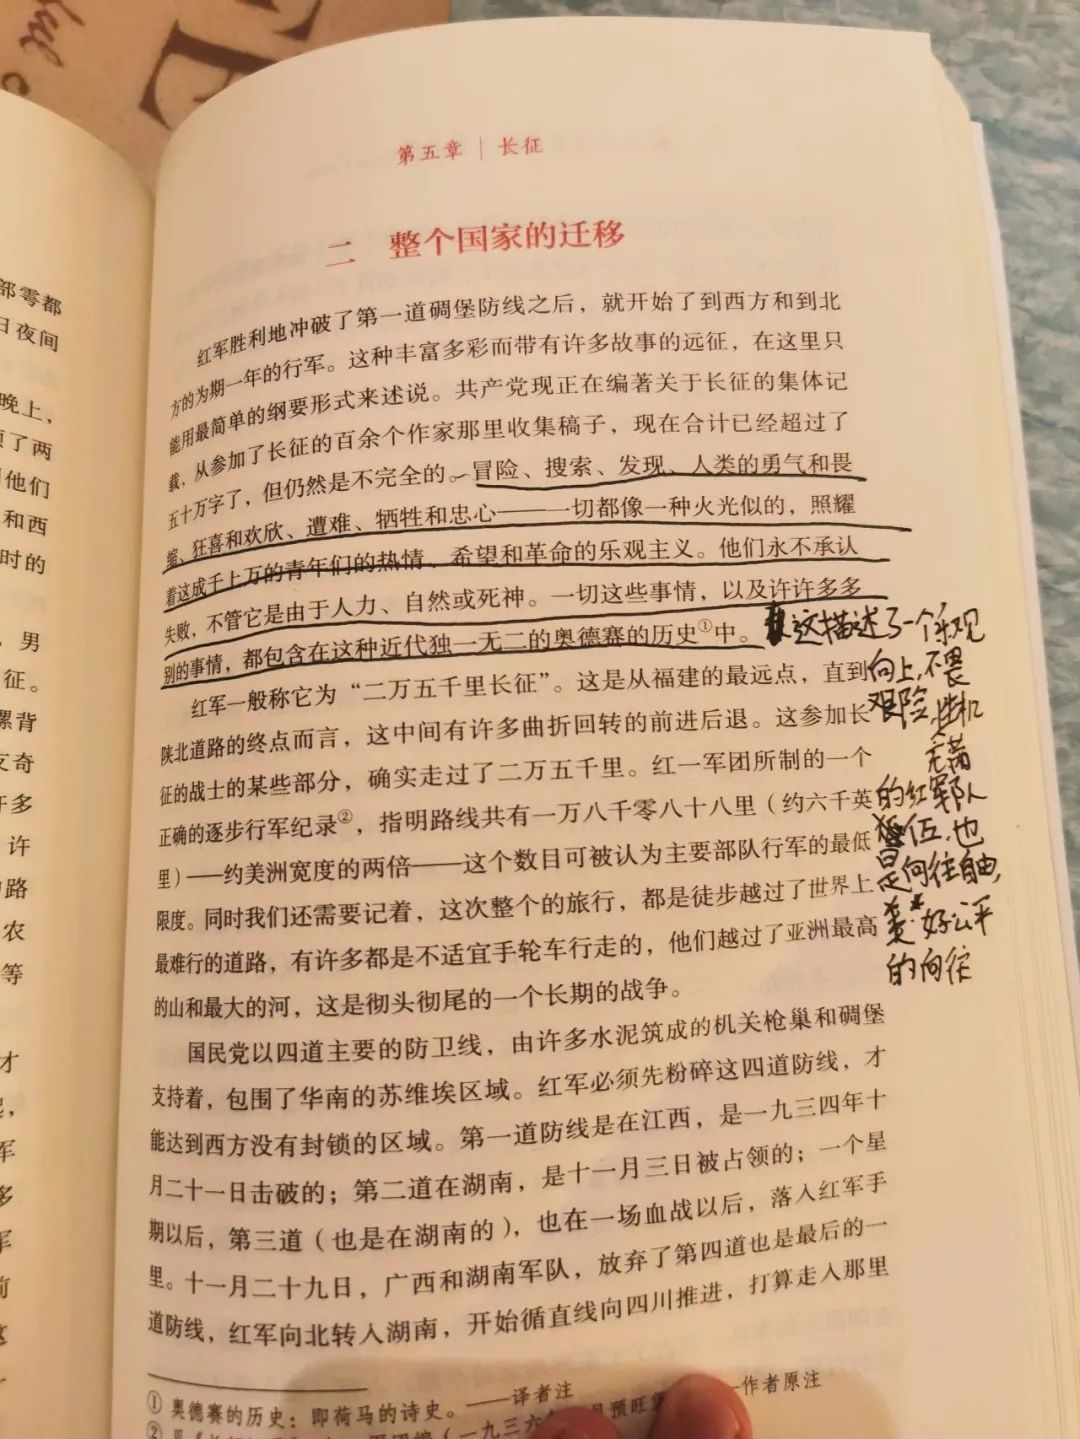 部雩都
日夜间
晚上，
领了两
他们
和西
时的
男
征。
骡背
支奇
许多
许
路
农
等
才
军
多
军
前
第五章 | 长征
二 整个国家的迁移
红军胜利地冲破了第一道碉堡防线之后，就开始了到西方和到北
方的为期一年的行军。这种丰富多彩而带有许多故事的远征，在这里只
能用最简单的纲要形式来述说。共产党现正在编著关于长征的集体记
载，从参加了长征的百余个作家那里收集稿子，现在合计已经超过了
五十万字了，但仍然是不完全的。冒险、搜索、发现、人类的勇气和畏
缩、狂喜和欢欣、遭难、牺牲和忠心——一切都像一种火光似的，照耀
着这成千上万的青年们的热情、希望和革命的乐观主义。他们永不承认
失败，不管它是由于人力、自然或死神。一切这些事情，以及许许多多
别的事情，都包含在这种近代独一无二的奥德赛的历史①中。
红军一般称它为“二万五千里长征”。这是从福建的最远点，直到
陕北道路的终点而言，这中间有许多曲折回转的前进后退。这参加长
征的战士的某些部分，确实走过了二万五千里。红一军团所制的一个
正确的逐步行军纪录②，指明路线共有一万八千零八十八里（约六千英
里）——约美洲宽度的两倍——这个数目可被认为主要部队行军的最低
限度。同时我们还需要记着，这次整个的旅行，都是徒步越过了世界上
最难行的道路，有许多都是不适宜手轮车行走的，他们越过了亚洲最高
的山和最大的河，这是彻头彻尾的一个长期的战争。
国民党以四道主要的防卫线，由许多水泥筑成的机关枪巢和碉堡
支持着，包围了华南的苏维埃区域。红军必须先粉碎这四道防线，才
能达到西方没有封锁的区域。第一道防线是在江西，是一九三四年十
月二十一日击破的；第二道在湖南，是十一月三日被占领的；一个星
期以后，第三道（也是在湖南的），也在一场血战以后，落入红军手
里。十一月二十九日，广西和湖南军队，放弃了第四道也是最后的一
道防线，红军向北转入湖南，开始循直线向四川推进，打算走入那里
这描述了一个乐观
向上，不畏
艰险，生机
充满
的红军队
伍，也
是向往自由，
美好公平
的向往
① 奥德赛的历史：即荷马的诗史。——译者注
② （一九三六年 月预旺堡 —作者原注